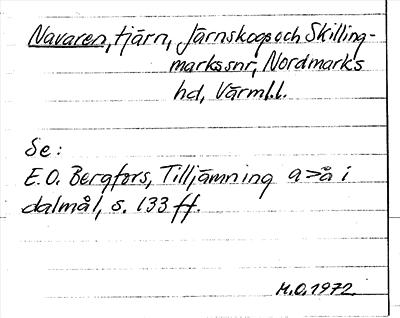 Navaren, tjärn, Järnskogs och Skilling-
markssnr, Nordmarks
hd, Värml.l.
Se:
E.O. Bergfors, Tilljämning a>å i
dalmål, s. 133 ff.
M.O. 1972.